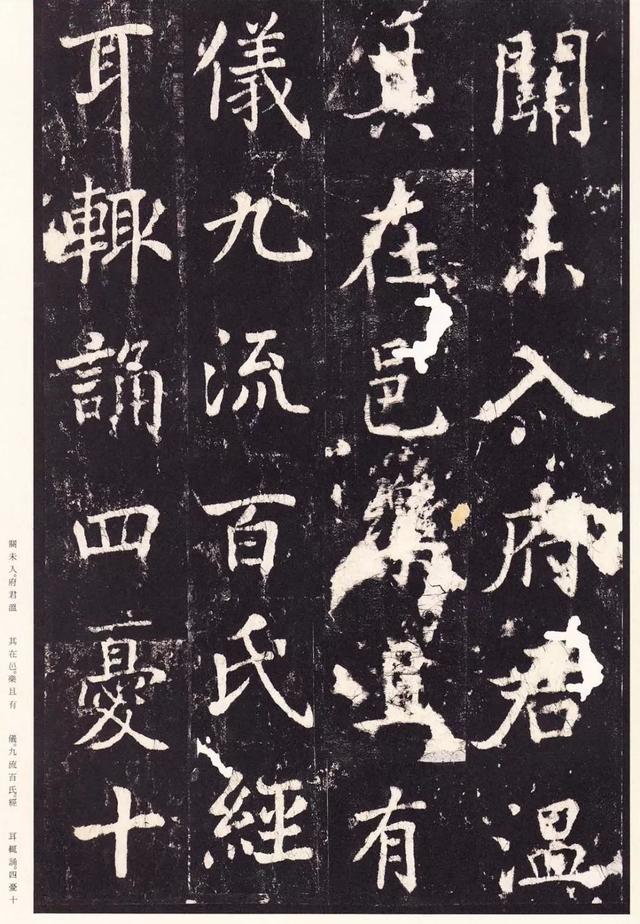 關未入府君溫
其在邑藥且有
儀九流百氏經
耳輙誦四憂十
關未入。府君溫　其在邑。藥且有　儀。九流百氏。經　耳輙誦。四憂十